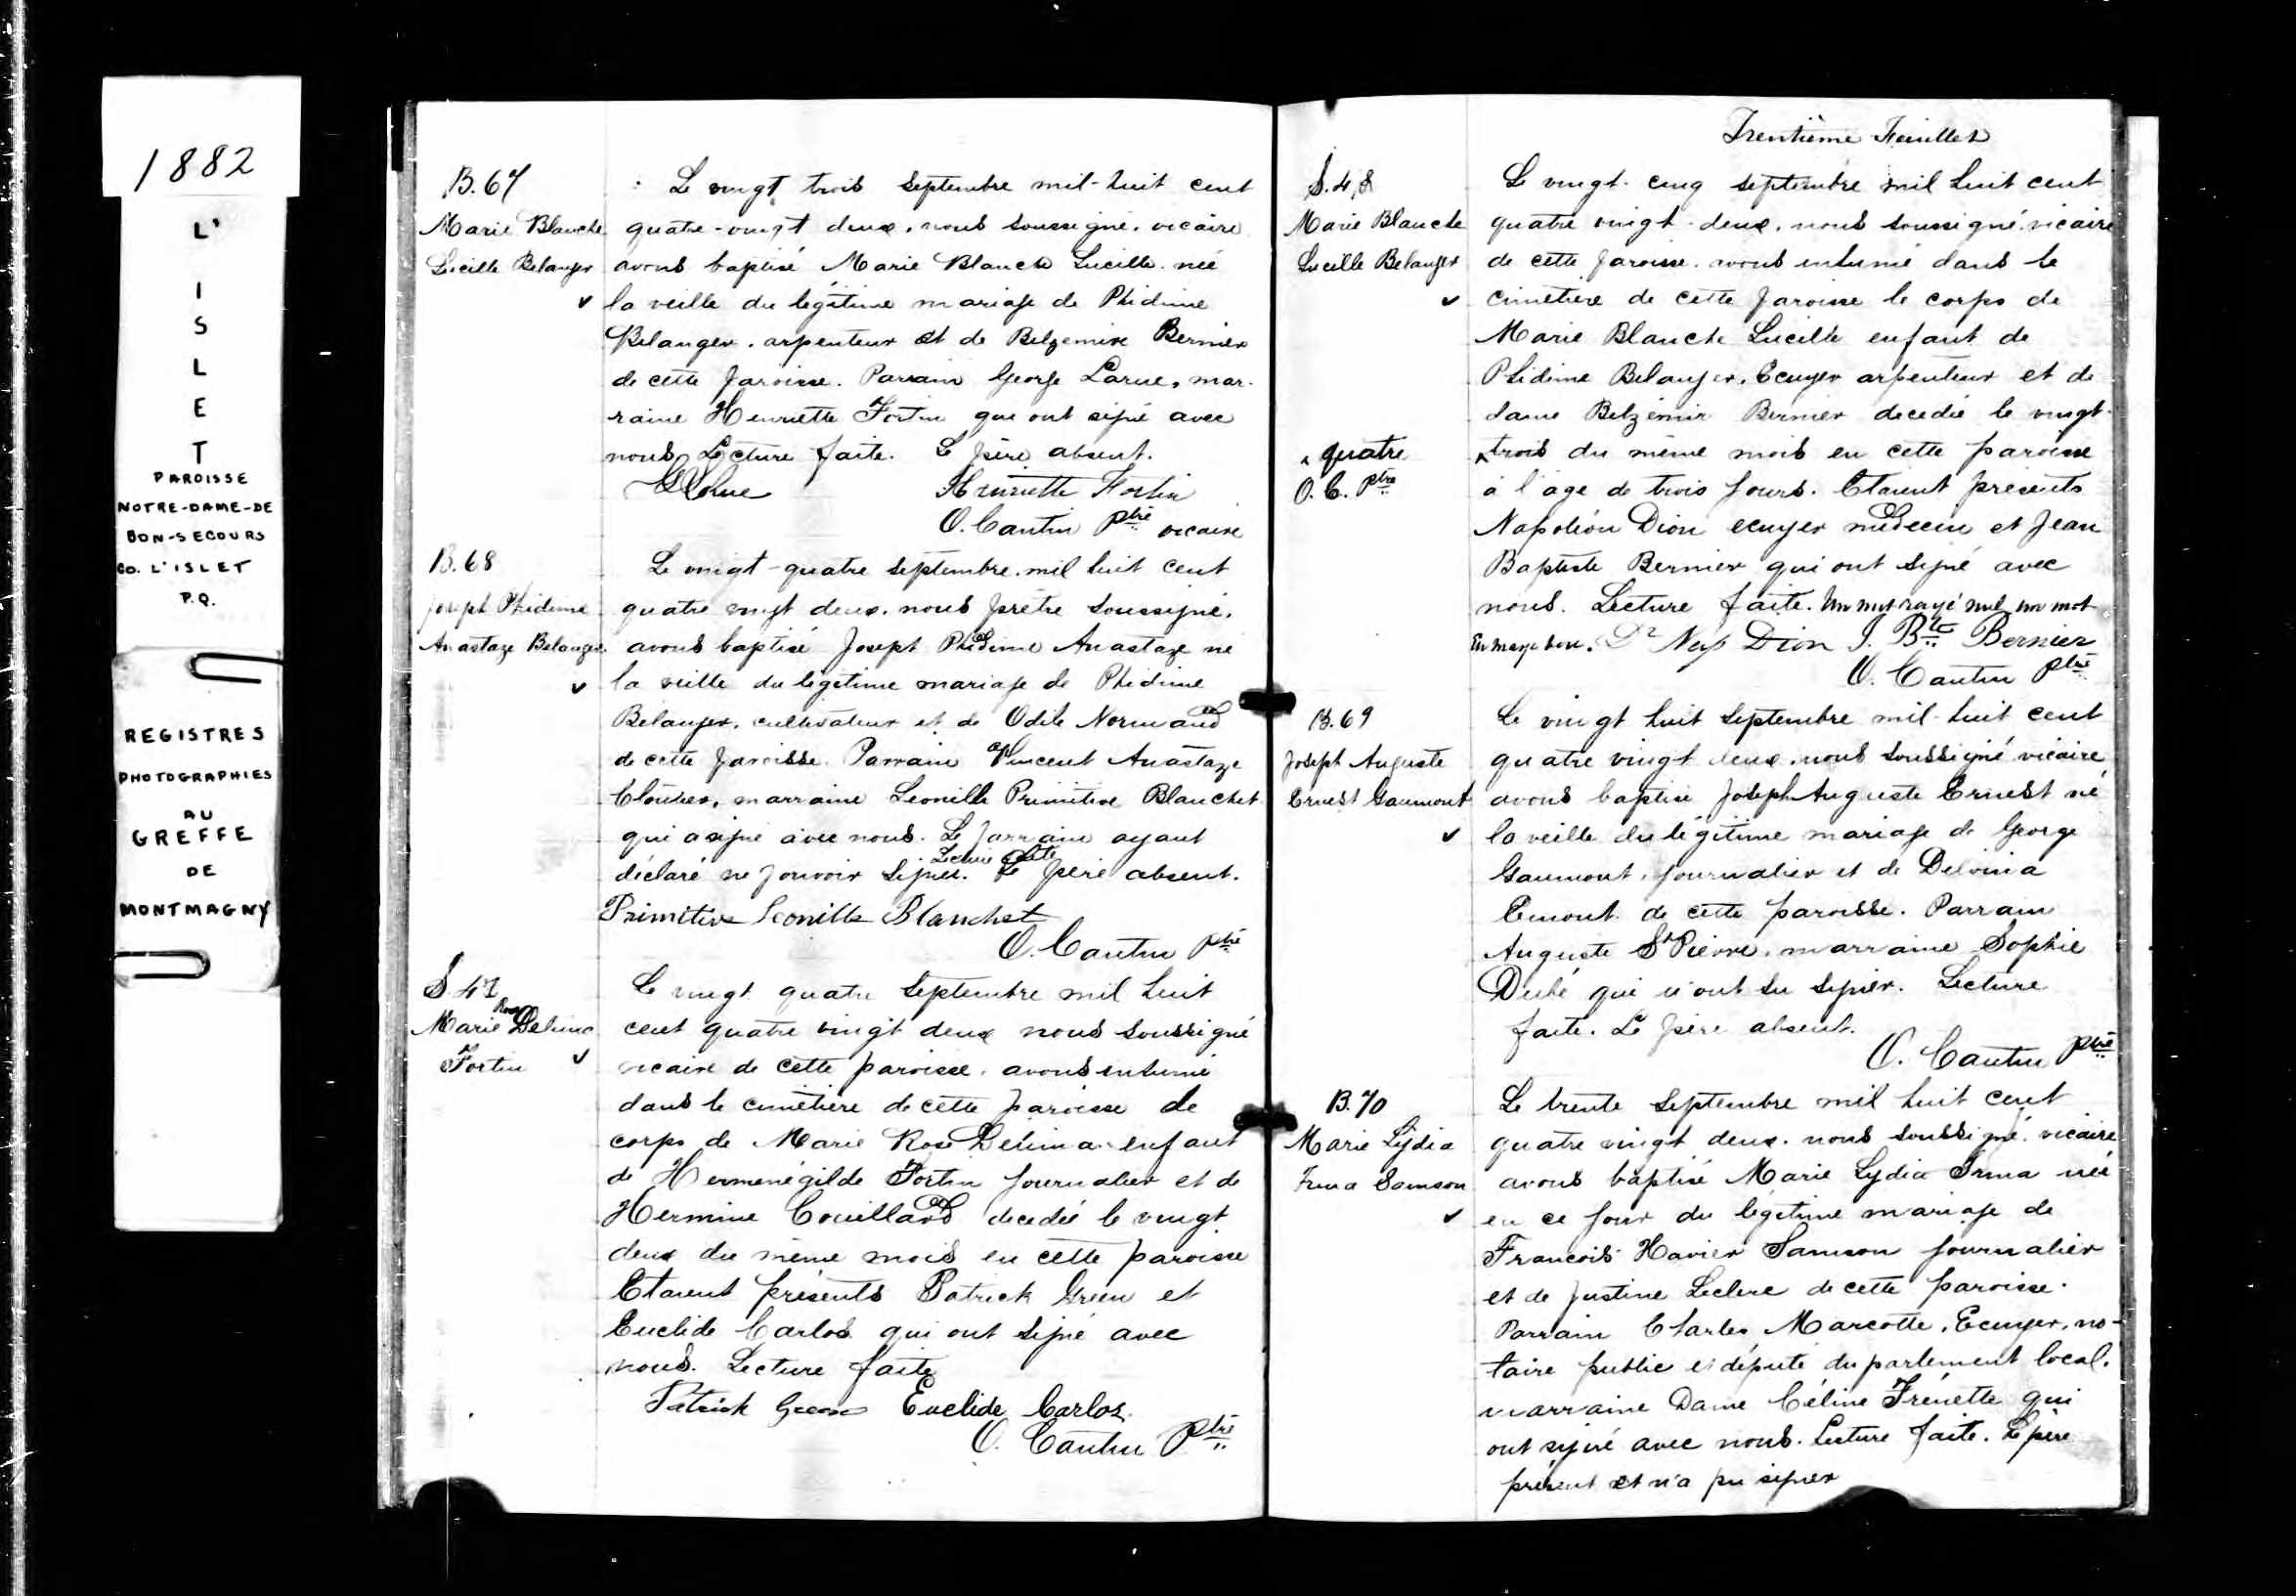 1882
L'
I
S
L
E
T
PAROISSE
NOTRE-DAME-DE
BON-SECOURS
CO. L'ISLET
P.Q.
REGISTRES
PHOTOGRAPHIES
AU
GREFFE
DE
MONTMAGNY
B.67
Marie Blanche
Lucille Belanger
Le vingt trois septembre mil-huit cent
quatre-vingt deux, nous soussigné, vicaire
avons baptisé Marie Blanche Lucille née
la veille du légitime mariage de Phidime
Belanger, arpenteur et de Belzemire Bernier
de cette paroisse. Parrain George Larue, mar-
raine Henriette Fortin qui ont signé avec
nous Lecture faite. Le père absent.
Henriette Fortin
O. Cantin Ptre vicaire
B.68
Joseph Phidime
Anastaze Belanger
Le vingt-quatre septembre mil huit cent
quatre vingt deux, nous prêtre soussigné,
avons baptisé Joseph Phidime Anastaze né
la veille du légitime mariage de Phidime
Belanger, cultivateur et de Odile Normand
de cette paroisse. Parrain Vincent Anastaze
Cloutier, marraine Leonille Primitive Blanchet
qui a signé avec nous. Le parrain ayant
déclaré ne pouvoir signer. Lecture faite Le père absent.
Primitive Leonille Blanchet
O. Cantin Ptre
S.47
Marie Rose Delima
Fortin
Le vingt quatre septembre mil huit
cent quatre vingt deux nous soussigné
vicaire de cette paroisse, avons inhumé
dans le cimetière de cette paroisse le
corps de Marie Rose Delima enfant
de Hermenégilde Fortin journalier et de
Hermine Couillard decedée le vingt
deux du même mois en cette paroisse
Etaient présents Patrick Green et
Euclide Carlos qui ont signé avec
nous. Lecture faite
Patrick Green Euclide Carlos.
O. Cantin Ptre
Trentième Feuillet
S.48
Marie Blanche
Lucille Belanger
Le vingt-cinq septembre mil huit cent
quatre vingt-deux, nous soussigné vicaire
de cette paroisse avons inhumé dans le
cimetière de cette paroisse le corps de
Marie Blanche Lucille enfant de
Phidime Belanger, Ecuyer arpenteur et de
dame Belzémir Bernier decedée le vingt-
quatre
O. C. Ptre
trois du même mois en cette paroisse
à l'age de trois jours. Etaient présents
Napoléon Dion ecuyer médecin et Jean
Baptiste Bernier qui ont signé avec
nous. Lecture faite. Un mot rayé nul un mot
en marge bon. Dr Nap Dion J. Bte Bernier
O. Cantin Ptre
B.69
Joseph Auguste
Ernest Gaumont
Le vingt huit septembre mil-huit cent
quatre vingt deux, nous soussigné vicaire
avons baptisé Joseph Auguste Ernest né
la veille du légitime mariage de George
Gaumont, journalier et de Delvina
Emont de cette paroisse. Parrain
Auguste St Pierre, marraine Sophie
Dubé qui n'ont su signer. Lecture
faite. Le père absent.
O. Cantin Ptre
B.70
Marie Lydia
Irma Samson
Le trente septembre mil huit cent
quatre vingt deux nous soussigné, vicaire
avons baptisé Marie Lydia Irma née
en ce jour du légitime mariage de
Francois Xavier Samson journalier
et de Justine Leclerc de cette paroisse.
Parrain Charles Marcotte, Ecuyer, no-
taire public et député du parlement local,
marraine Dame Céline Frénette qui
ont signé avec nous. Lecture faite. Le père
présent et n'a pu signer